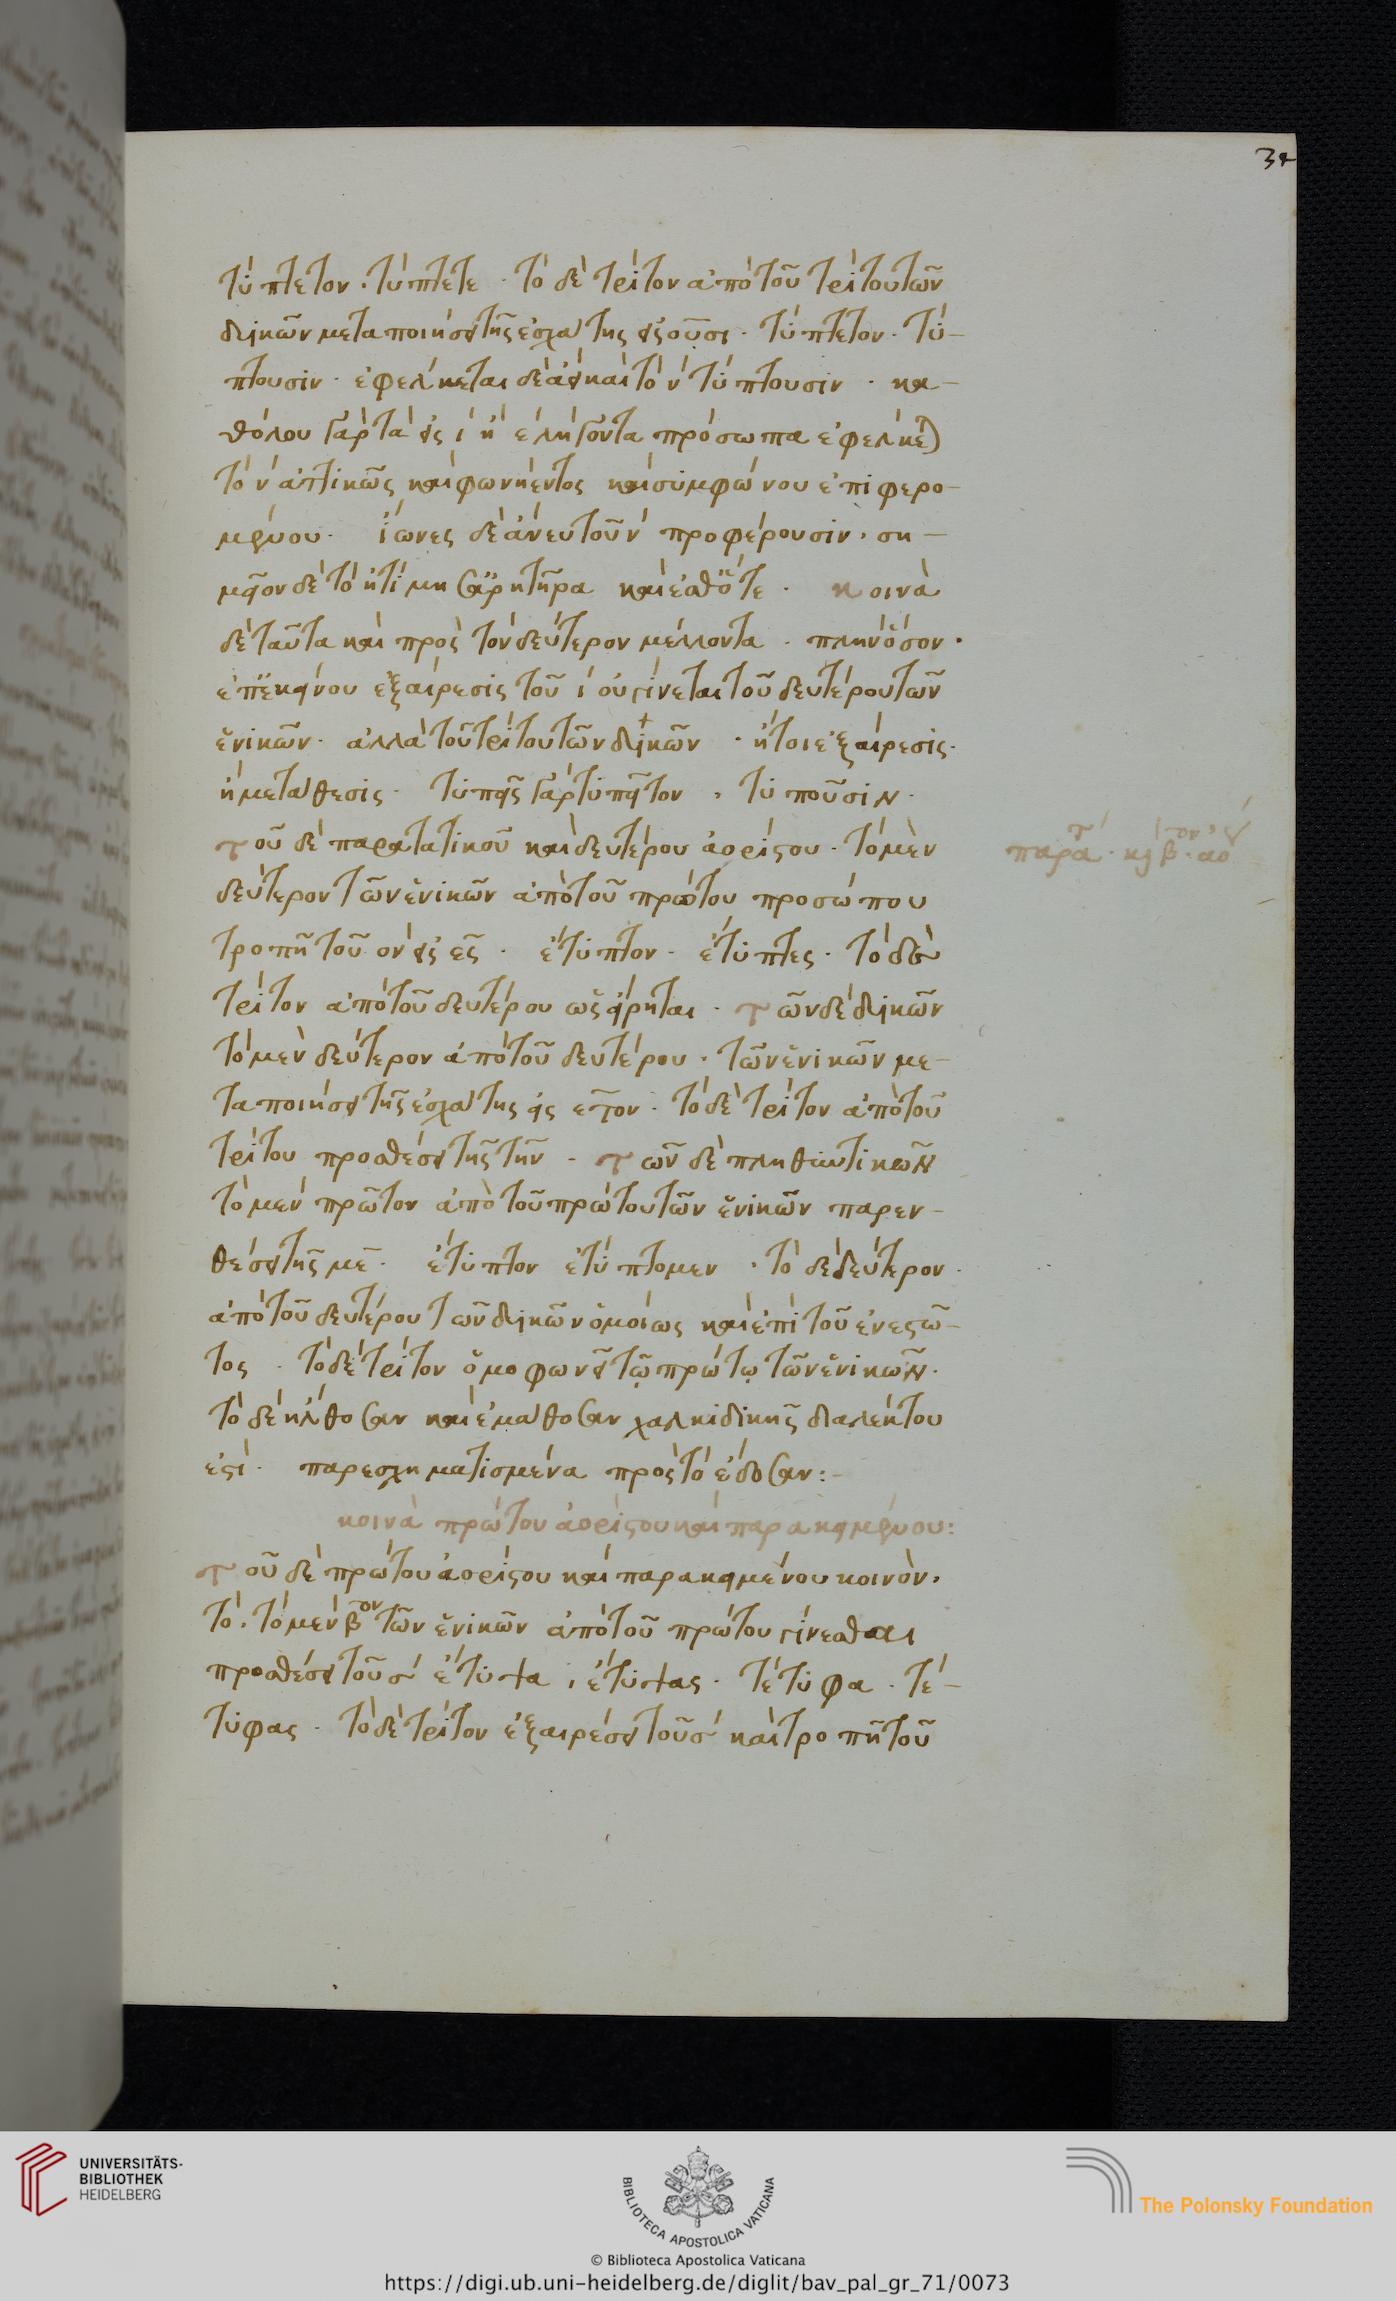 34
τύπτετον. τύπτετε. τὸ δὲ τρίτον ἀπὸ τοῦ τρίτου τῶν
δυικῶν μεταποιήσει τῆς ἐσχάτης εἰς οῦσι. τύπτετον. τύ-
πτουσιν. ἐφέλκεται δὲ ἀεὶ καὶ τὸ ν τύπτουσιν. κα-
θόλου γὰρ τὰ εἰς ι ἢ ε λήγοντα πρόσωπα ἐφέλκεται
τὸ ν ἀττικῶς καὶ φωνήεντος καὶ συμφώνου ἐπιφερο-
μένου. ἴωνες δὲ ἄνευ τοῦ ν προφέρουσιν. ση-
μεῖον δὲ τὸ ἠτίμησ' ἀρητῆρα καὶ ὅτε. κοινὰ
δὲ ταῦτα καὶ πρὸς τὸν δεύτερον μέλλοντα. πλὴν ὅσον.
ἐπ' ἐκείνου ἐξαίρεσις τοῦ ι οὐ γίνεται τοῦ δευτέρου τῶν
ἑνικῶν. ἀλλὰ τοῦ τρίτου τῶν δυικῶν. ἤτοι ἐξαίρεσις.
ἢ μετάθεσις. τυπεῖς γὰρ τυπεῖτον. τυποῦσιν.
τοῦ δὲ παρατατικοῦ καὶ δευτέρου ἀορίστου. τὸ μὲν
παρατ. κ β. αο
δεύτερον τῶν ἑνικῶν ἀπὸ τοῦ πρώτου προσώπου
τροπῇ τοῦ ον εἰς ες. ἔτυπτον. ἔτυπτες. τὸ δὲ
τρίτον ἀπὸ τοῦ δευτέρου ὡς εἴρηται. τῶν δὲ δυικῶν
τὸ μὲν δεύτερον ἀπὸ τοῦ δευτέρου. τῶν ἑνικῶν με-
ταποιήσει τῆς ἐσχάτης εἰς ετον. τὸ δὲ τρίτον ἀπὸ τοῦ
τρίτου προσθέσει τῆς την. τῶν δὲ πληθυντικῶν
τὸ μὲν πρῶτον ἀπὸ τοῦ πρώτου τῶν ἑνικῶν παρεν-
θέσει τῆς με. ἔτυπτον ἐτύπτομεν. τὸ δὲ δεύτερον.
ἀπὸ τοῦ δευτέρου τῶν δυικῶν ὁμοίως καὶ ἐπὶ τοῦ ἐνεστῶ-
τος. τὸ δὲ τρίτον ὁμοφωνεῖ τῷ πρώτῳ τῶν ἑνικῶν.
τὸ δὲ ἤλθοσαν καὶ ἐμάθοσαν χαλκιδικῆς διαλέκτου
ἐστί. παρεσχηματισμένα πρὸς τὸ ἔδοσαν:-
κοινὰ πρώτου ἀορίστου καὶ παρακειμένου:
τοῦ δὲ πρώτου ἀορίστου καὶ παρακειμένου κοινὸν.
τό. τὸ μὲν βον τῶν ἑνικῶν ἀπὸ τοῦ πρώτου γίνεσθαι
προσθέσει τοῦ σ ἔτυψα. ἔτυψας. τέτυφα. τέ-
τυφας. τὸ δὲ τρίτον ἐξαιρέσει τοῦ σ καὶ τροπῇ τοῦ
UNIVERSITÄTS-
BIBLIOTHEK
HEIDELBERG
BIBLIOTECA APOSTOLICA VATICANA
The Polonsky Foundation
© Biblioteca Apostolica Vaticana
https://digi.ub.uni-heidelberg.de/diglit/bav_pal_gr_71/0073